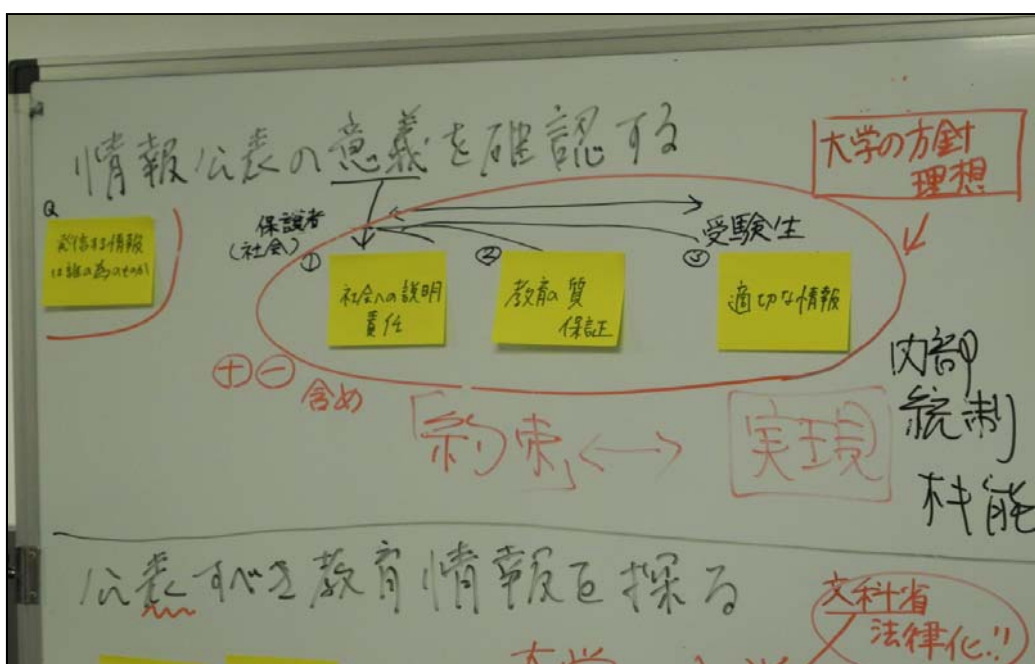 情報公表の意義を確認する
大学の方針
理想
Q
発信する情報
は誰の為のものか
保護者
(社会)
①
社会への説明
責任
②
教育の質
保証
③
受験生
適切な情報
⊕⊖
含め
「約束」⟷
実現
内部
統制
機能
公表すべき教育情報を探る
文科省
法律化!!
大学